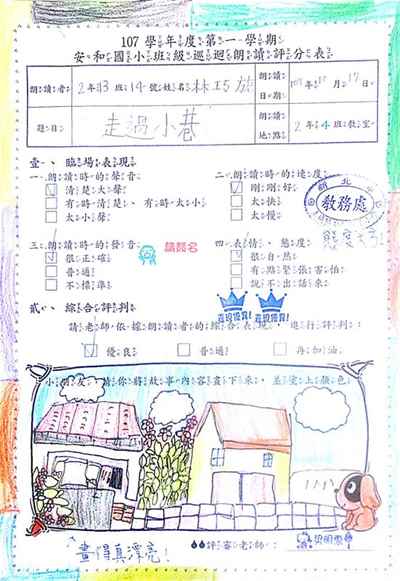 107 學年度第一學期
安和國小班級巡迴朗讀評分表
朗讀者 2年13班14號姓名 林巧旂 朗讀日期 107年 月17日
題目 走過小巷 朗讀地點 2年4班教室
壹、臨場表現
一、朗讀時的聲音
清晰大聲
有時清晰、有時太小
太小聲
二、朗讀時的速度
剛剛好
太快
太慢
教務處
三、朗讀時的發音
很正確
普通
不標準
請簽名
四、表情、態度
很自然
有點緊張害怕
說不出話來
態度大方
表現優異!
表現優異!
貳、綜合評判
請老師依據朗讀者的綜合表現,進行評判:
優良
普通
再加油
小朋友,請你將故事內容畫下來,並塗上顏色
畫得真漂亮!
評審老師: